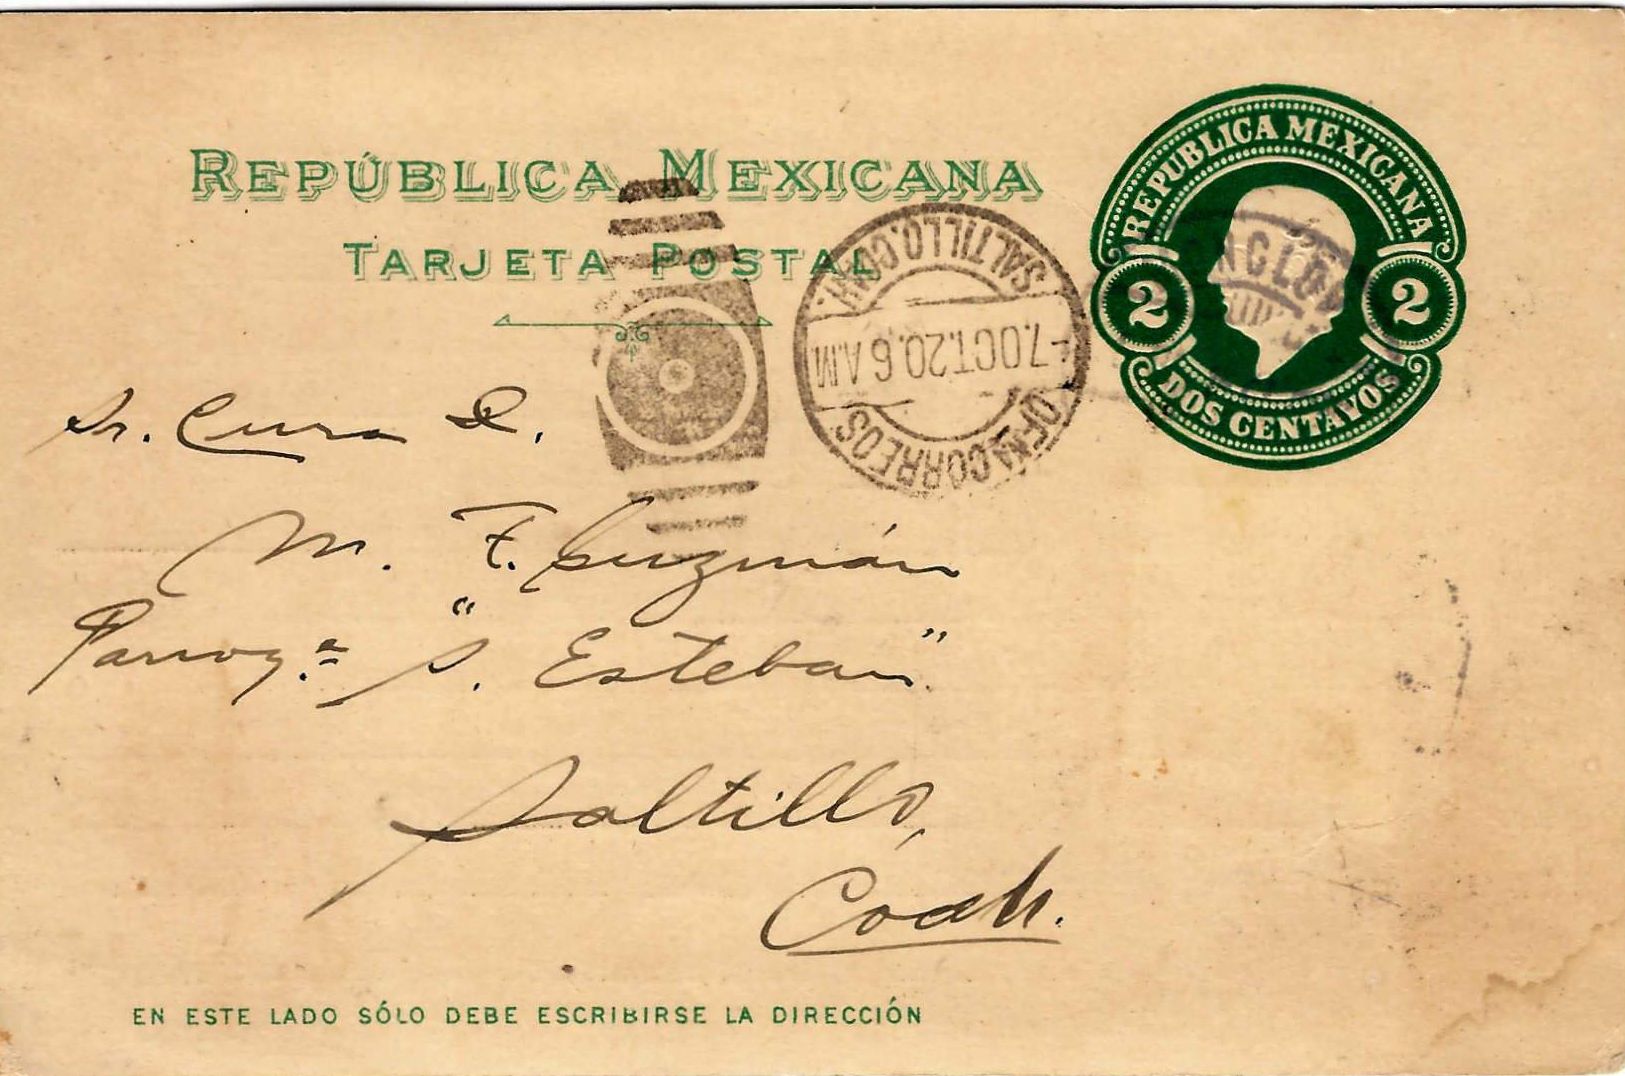 REPÚBLICA MEXICANA
TARJETA POSTAL
REPUBLICA MEXICANA
2 2
DOS CENTAVOS
SALTILLO. COAH.
-7 OCT. 20. 6 A.M
OFNA. CORREOS
Sr. Cura D.
M. F. Guzmán
Parroq.ª "S. Esteban"
Saltillo,
Coah.
EN ESTE LADO SÓLO DEBE ESCRIBIRSE LA DIRECCIÓN